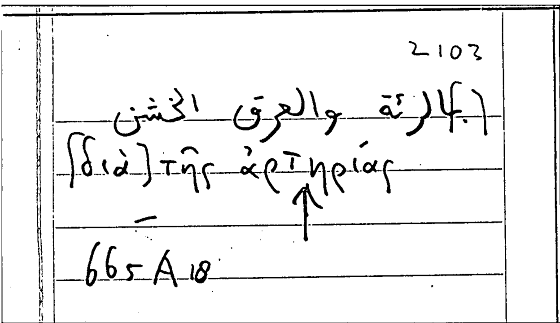 2103
[ب]الرئة والعرق الخشن
[διὰ] τῆς ἀρτηρίας
665 A 18